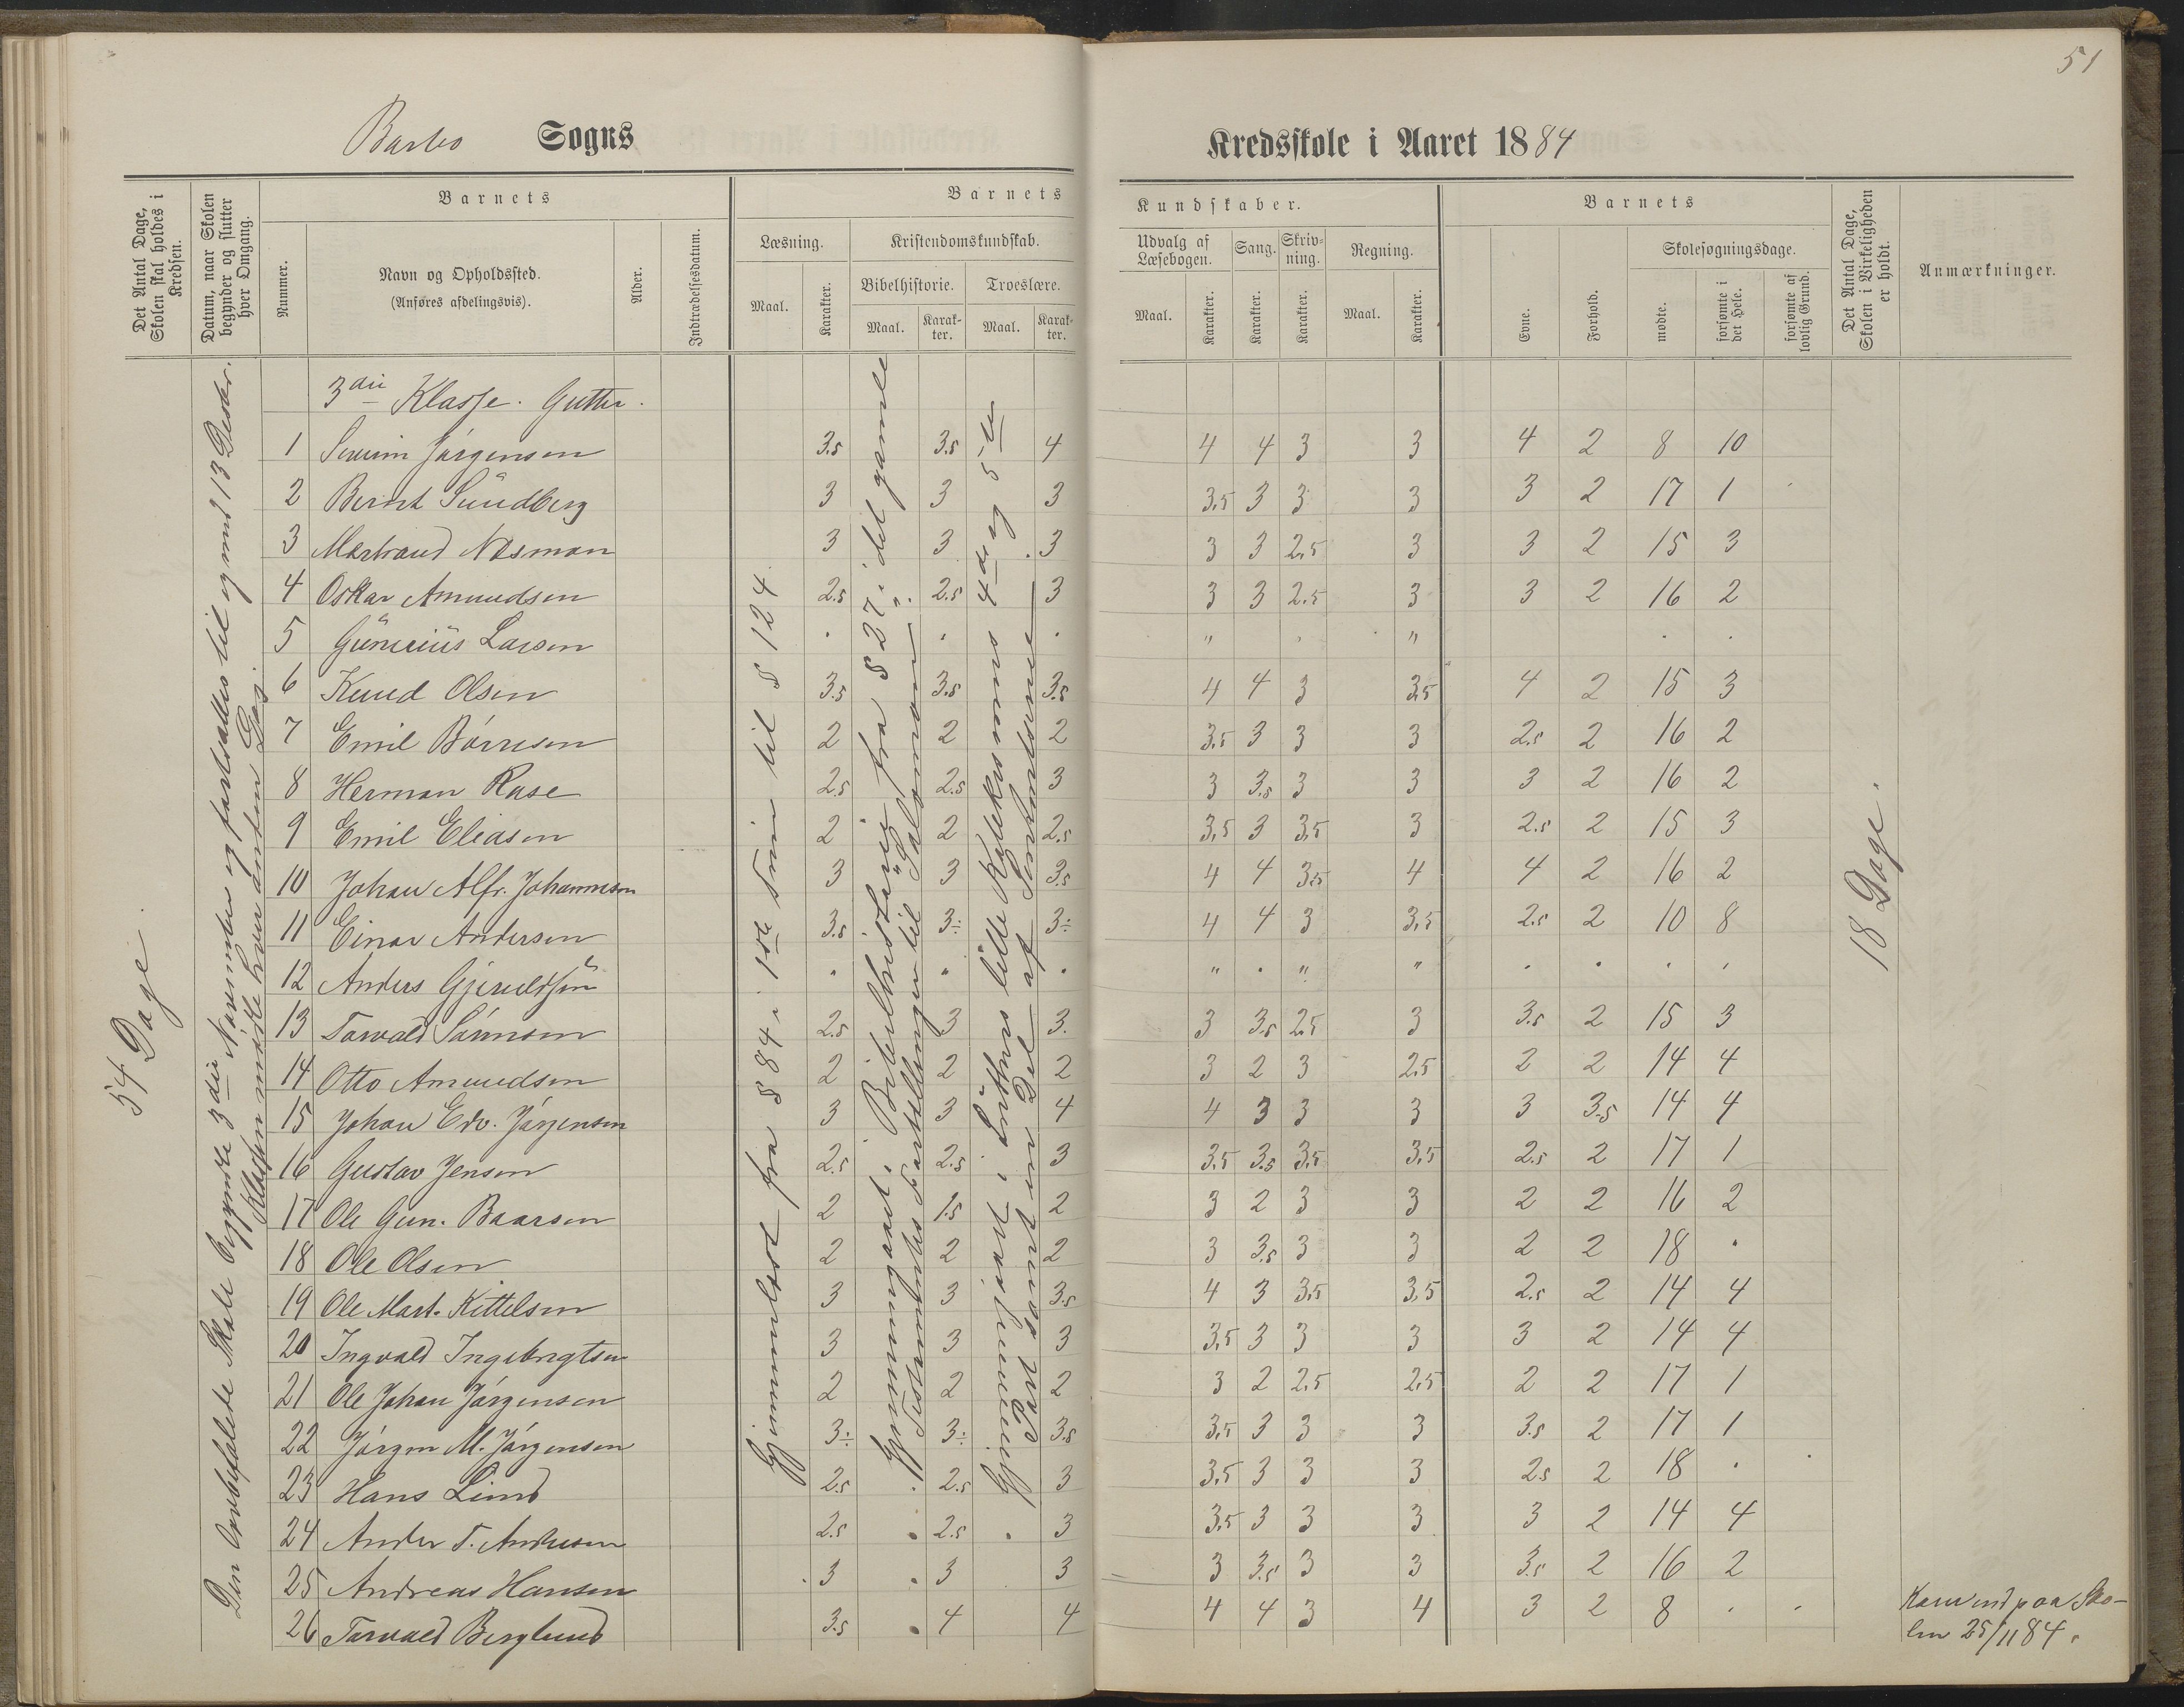 51
Barbo Sogns
Kredsskole i Aaret 1884
Det Antal Dage, Skolen skal holdes i Kredsen.
Datum, naar Skolen begynder og slutter hver Omgang.
Barnets
Nummer.
Navn og Opholdssted.
(Anføres afdelingsvis).
Alder.
Indtrædelsesdatum.
Barnets
Læsning.
Maal.
Karakter.
Kristendomskundskab.
Bibelhistorie.
Maal.
Karakter.
Troeslære.
Maal.
Karakter.
Kundskaber.
Udvalg af Læsebogen.
Maal.
Karakter.
Sang.
Karakter.
Skrivning.
Karakter.
Regning.
Maal.
Karakter.
Barnets
Evne.
Forhold.
Skolesøgningsdage.
mødte.
forsømte i det Hele.
forsømte af lovlig Grund.
Det Antal Dage, Skolen i Virkeligheden er holdt.
Anmærkninger.
54 Dage.
Den anbefalede Skole begyndte 3die November og fortsattes til og med 13 Decbr.
Klassen mødte hver anden Dag
3die Klasse. Gutter.
Gjennemlæst fra § 84 i 1ste Trin til § 124
Gjennemgaaet i Bibelhistorie fra § 27 i det gamle
Testamente Fortællingen til "Salomon".
Gjennemgaaet i Luthers lille Katekismus 4de og 5te
Part samt en Del af Senkentserne
1 Severin Jørgensen 3.5 3.5 4 4 4 3 3 4 2 8 10
2 Bernt Sundberg 3 3 3 3,5 3 3 3 3 2 17 1
3 Markand Næsman 3 3 3 3 3 2,5 3 3 2 15 3
4 Oskar Amundsen 2.5 2.5 3 3 3 2.5 3 3 2 16 2
5 Gunerius Larsen " "
6 Knud Olsen 3.5 3.5 3.5 4 4 3 3,5 4 2 15 3
7 Emil Børresen 2 2 2 3,5 3 3 3 2.5 2 16 2
8 Herman Rase 2.5 2.5 3 3 3.5 3 3 3 2 16 2
9 Emil Eliasen 2 2 2.5 3,5 3 3,5 3 2.5 2 15 3
10 Johan Alfr. Johannesen 3 3 3.5 4 4 3,5 4 4 2 16 2
11 Einar Andersen 3.5 3÷ 3÷ 4 4 3 3,5 2.5 2 10 8
12 Anders Gjeruldsen " " " "
13 Torvald Sørensen 2.5 3 3. 3 3.5 2,5 3 3.5 2 15 3
14 Otto Amundsen 2 2 2 3 2 3 2,5 2 2 14 4
15 Johan Edv. Jørgensen 3 3 4 4 3 3 3 3 3.5 14 4
16 Gustav Jensen 2.5 2.5 3 3,5 3.5 3,5 3,5 2.5 2 17 1
17 Ole Gun. Baarsen 2 1.5 2 3 2 3 3 2 2 16 2
18 Ole Olsen 2 2 2 3 3.5 3 3 2 2 18 .
19 Ole Mart. Kittelsen 3 3 3.5 4 3 3,5 3,5 2.5 2 14 4
20 Ingvald Ingebrigtsen 3 3 3 3,5 3 3 3 3 2 14 4
21 Ole Johan Jørgensen 2 2 2 3 2 2,5 2,5 2 2 17 1
22 Jørgen M. Jørgensen 3÷ 3÷ 3.5 3,5 3 3 3 3.5 2 17 1
23 Hans Lind 2.5 2.5 3 3,5 3 3 3 2.5 2 18 .
24 Anders T. Andresen 2.5 2.5 3 3,5 3 3 3 3 2 14 4
25 Andreas Hansen 3 3 3 3 3.5 3 3 3.5 2 16 2
26 Torvald Berglund 3.5 4 4 4 4 3 4 3 2 8
18 Dage.
Kom ind paa Sko-
len 25/11 84.